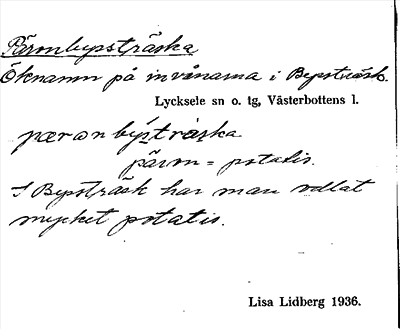 Päronbypsträska
Öknamn på invånarna i Bypsträsk.
Lycksele sn o. tg, Västerbottens l.
päron = potatis.
I Bypsträsk har man odlat
mycket potatis.
Lisa Lidberg 1936.